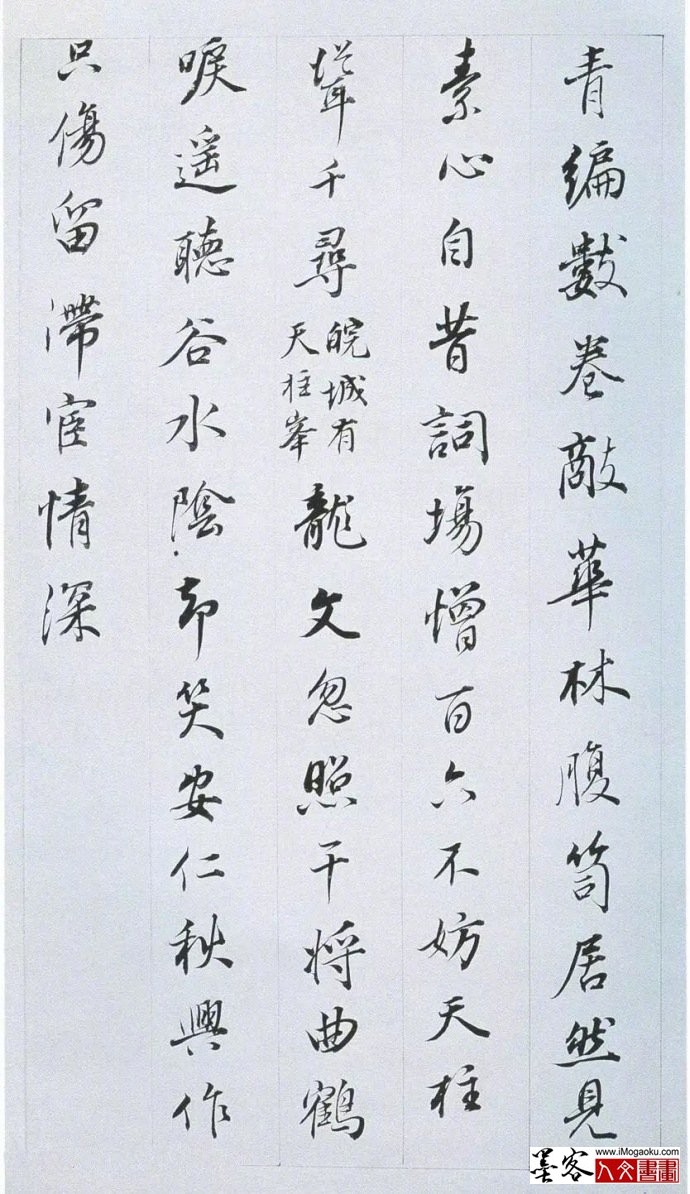 青編數卷敵華林腹笥居然見
素心自昔詞場憎百六不妨天柱
聳千尋皖城有天柱峯龍文忽照干将曲鶴
唳遥聽谷水陰却笑安仁秋興作
只傷留滯宦情深
www.iMogaoku.com
墨客人文書畫